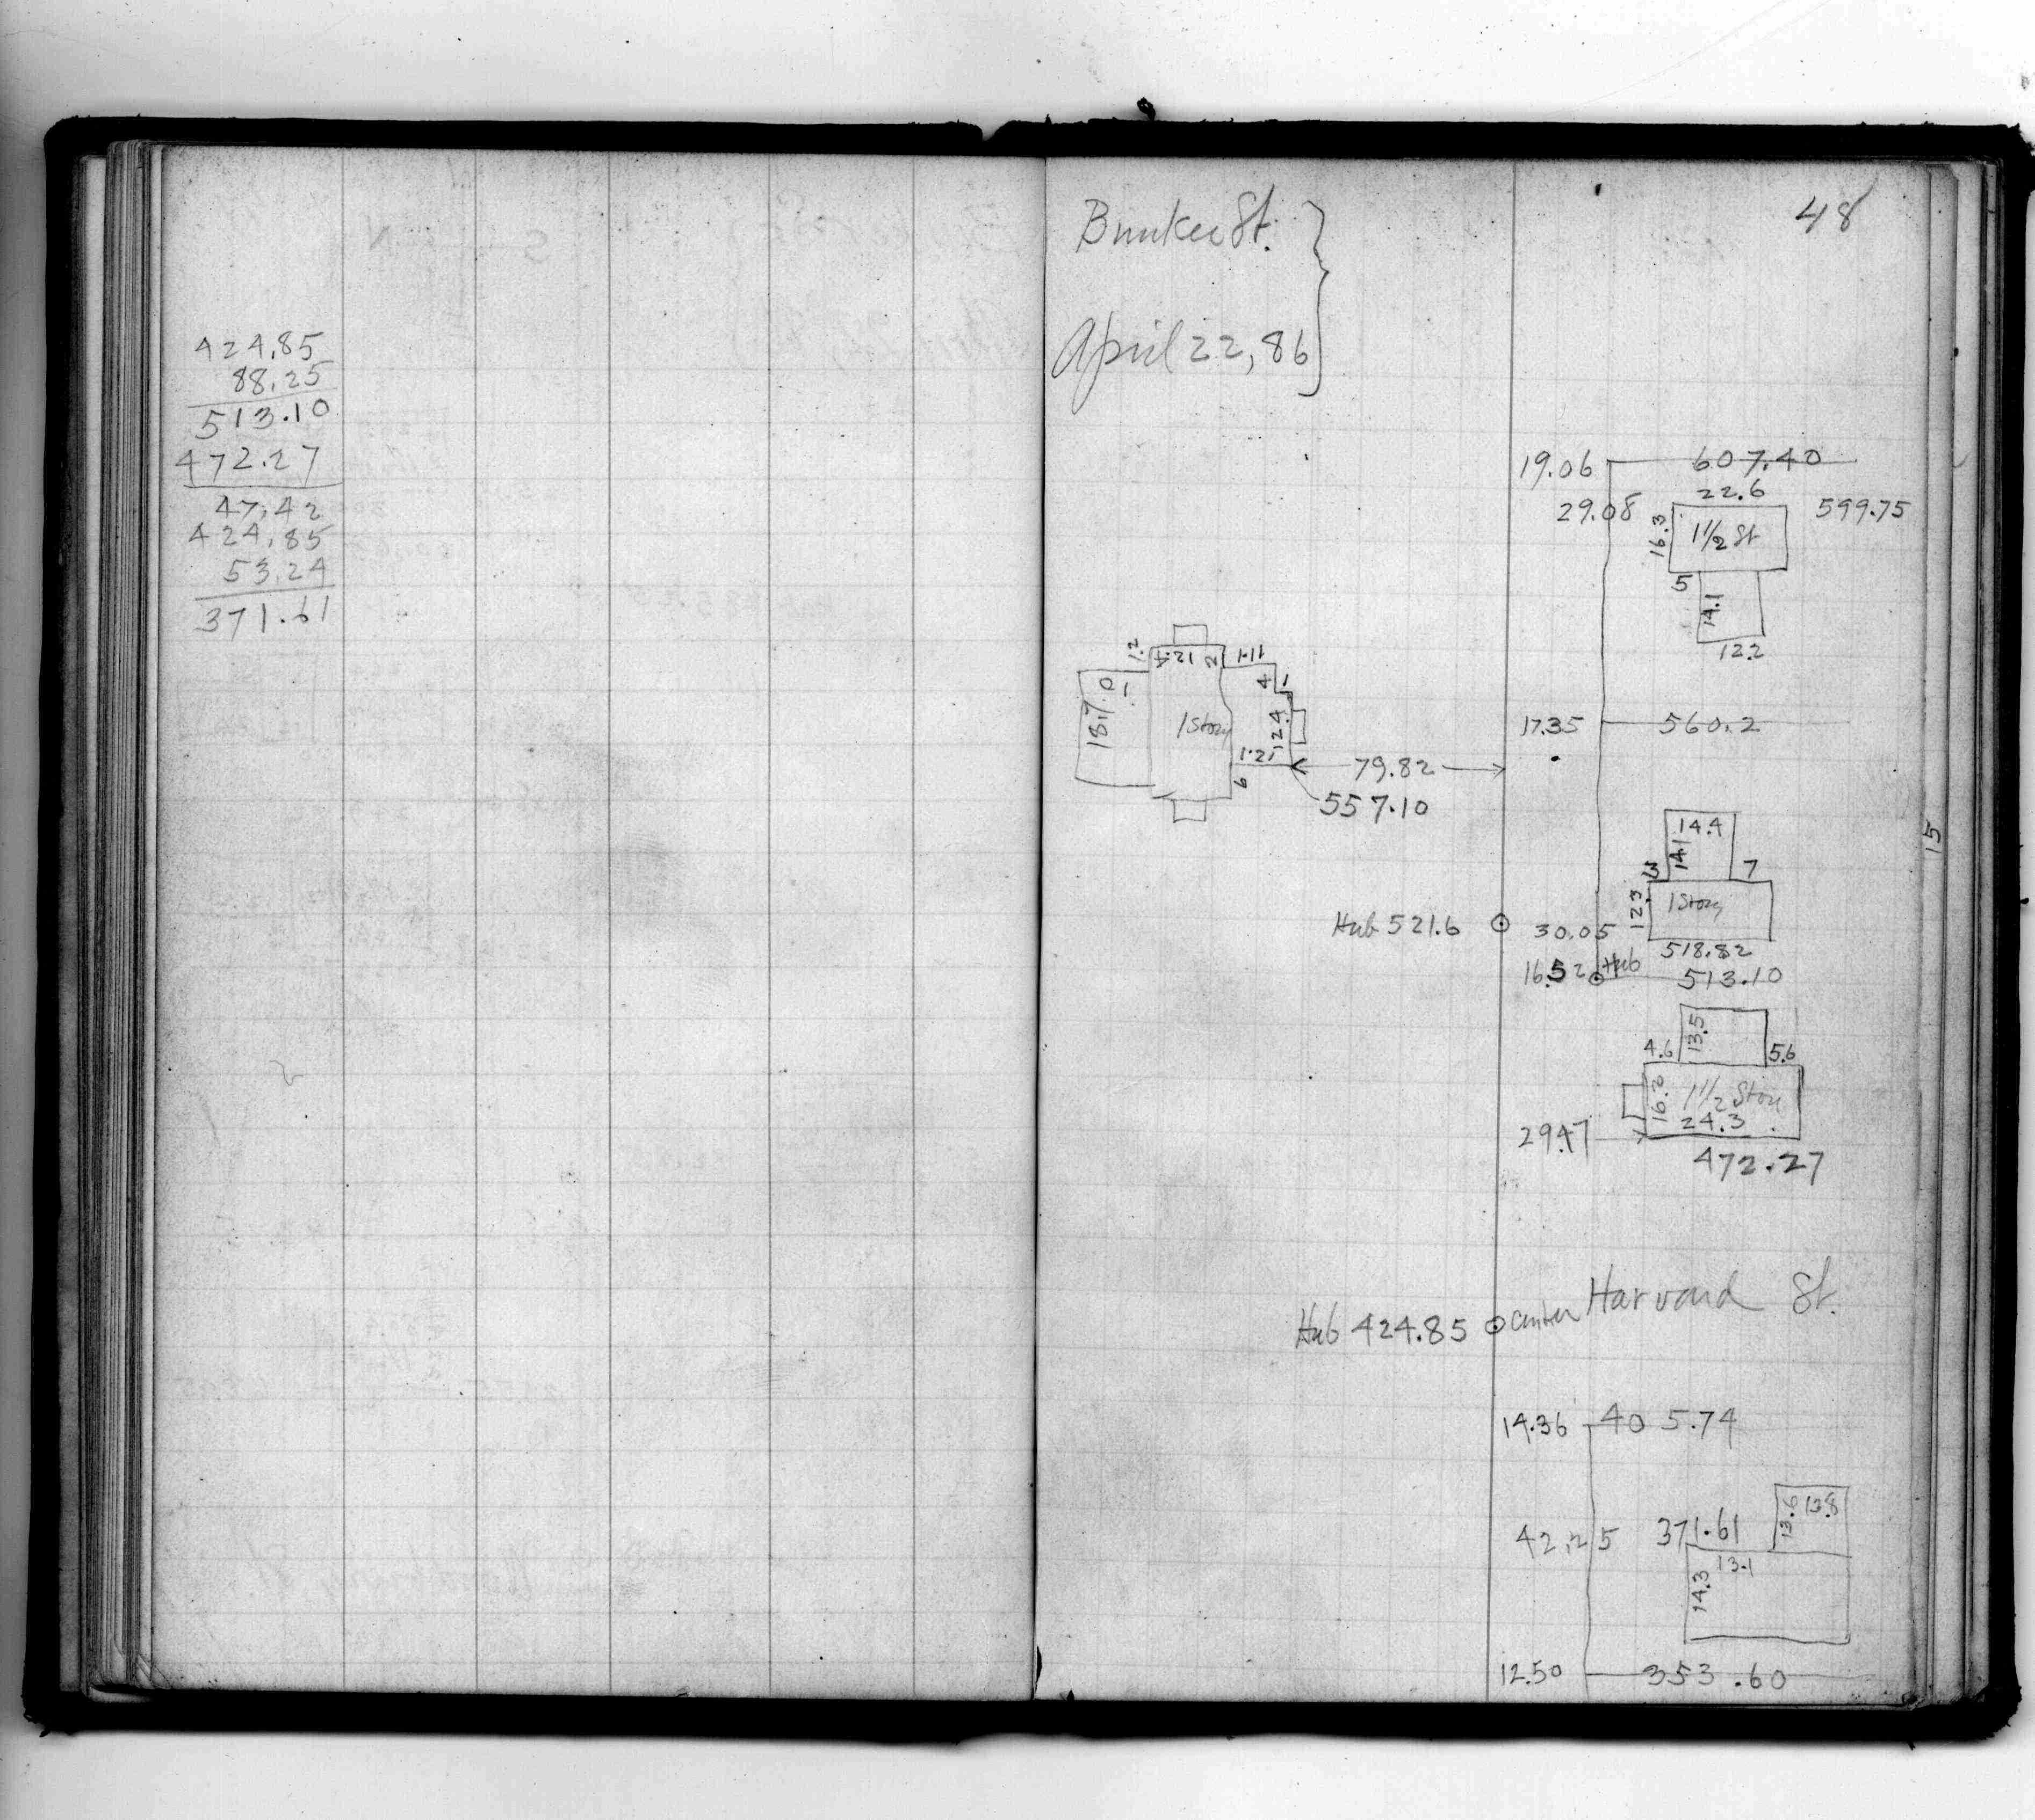 424.85
88.25
513.10
472.27
47.42
424.85
53.24
371.61
48
Bunker St.
April 22, 86
19.06 607.40
22.6
29.08 16.3 1 1/2 St 599.75
5
14.1
12.2
1.2 12.4 2 11.1
18.7 0 1 4 1
1 Story 12.4
17.35 560.2
12.1
6
79.82
557.10
14.4
14.1
3 7
12.3 1 Story
Hub 521.6 30.05
518.82
16.52 Hub 513.10
13.5
4.6 5.6
16.2 1 1/2 Stor
24.3
29.47
472.27
Harvard St.
Hub 424.85 center
14.36 405.74
13.6 13.8
42.25 371.61
13.1
14.3
12.50 353.60
15